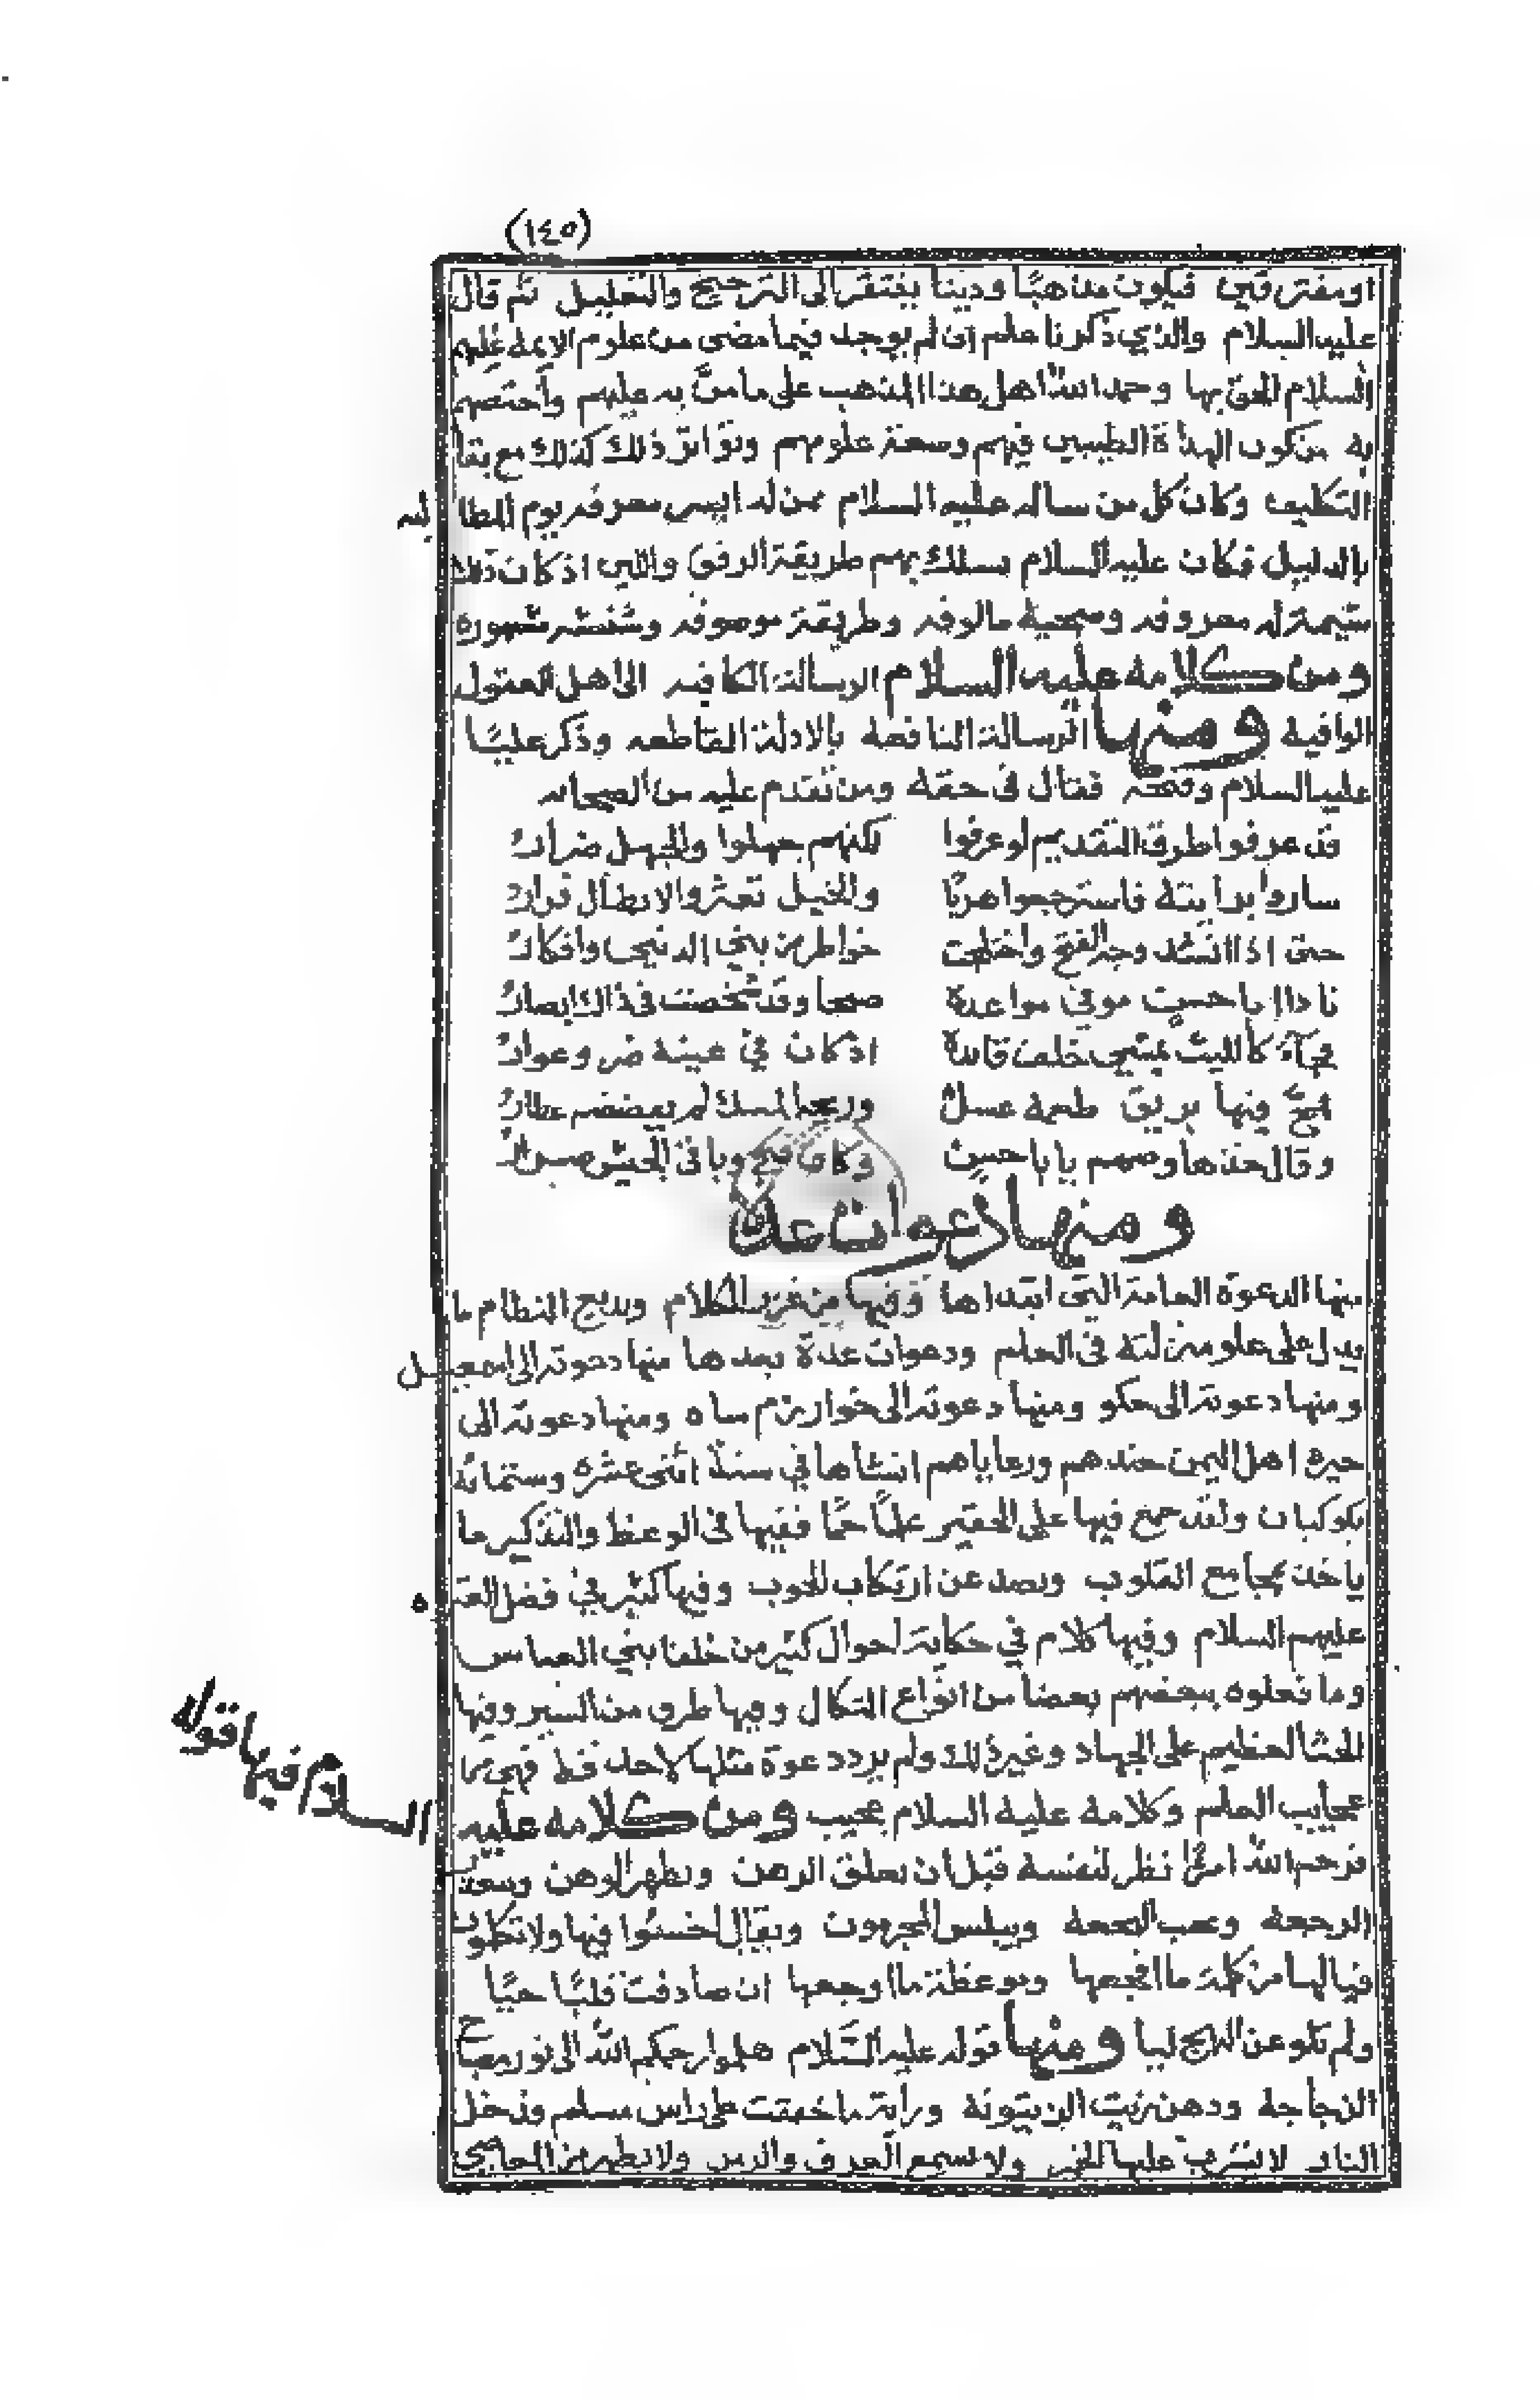 (١٤٥)
او مفترقين فيكون مذهبًا ودينا يفتقر الى الترجيح والتعليل ثم قال
عليه السلام والذي ذكرنا علم ان لم يوجد فيما مضى من علوم الائمة عليهم
السلام الحق بها وحمد الله اهل هذا المذهب على ما منّ به عليهم واختصهم
به من كون الهداة الطيبين فيهم وسعة علومهم وتواتر ذلك كذلك مع بقا
التكليف وكان كل من ساله عليه السلام ممن له ايسر معرفه يوم المطالبه
بالدليل فكان عليه السلام يسلك بهم طريقة الرفق واللين اذ كان ذلك
شيمة له معروفه وسجية مالوفه وطريقة موصوفه وشنشنه مشهوره
ومن كلامه عليه السلام الرسالة الكافيه الى اهل العقول
الوافيه ومنها الرسالة النافعه بالادلة القاطعه وذكر عليًا
عليه السلام وفتحه فقال في حقه ومن تقدم عليه من الصحابه
قد عرفوا طرق التقديم لو عرفوا لكنهم جهلوا والجهل ضرارُ
ساروا برايته فاسترجعوا هربًا والخيل تعثر والابطال فرارُ
حتى اذا انسد وجه الفتح واختلجت خواطر من بني الدنيا وافكارُ
نادا ابا حسن موفي مواعده صبحا وقد شخصت في ذاك ابصارُ
فجآء كالليث يمشي خلف قائده اذ كان في عينه ضر وعوارُ
فمجّ فيها بريق طعمه عسلٌ وريحه المسك لم يفضضه عطارُ
وقال خذها وصمم يا با حسن وكان فتح وباقي الجيش صبارُ
ومنها دعوات عدة
منها الدعوة العامة التى ابتداها وفيها من غريب الكلام وبديع النظام ما
يدل على علو منزلته في العلم ودعوات عدة بعدها منها دعوته الى امعجيل
ومنها دعوته الى حكو ومنها دعوته الى خوارزم ساه ومنها دعوته الى
جيره اهل اليمن جندهم ورعاياهم انشاها في سنة اثنى عشره وستمائه
بكوكبان ولقد جمع فيها على الحقير علمًا جمًا ففيها في الوعظ والتذكير ما
ياخذ بمجامع القلوب ويصد عن ارتكاب الحوب وفيها كثير في فضل العتره
عليهم السلام وفيها كلام في حكاية احوال كثير من خلفا بني العباس
وما فعلوه ببعضهم بعضا من انواع النكال وفيها طرف من السير وفيها
الحث العظيم على الجهاد وغير ذلك ولم يرد دعوة مثلها لاحد قط فهي من
عجايب العلم وكلامه عليه السلام عجيب ومن كلامه عليه
السلام فيها قوله
فرحم الله امرًا نظر لنفسه قبل ان يغلق الرهن ويظهر الوهن وينعدت
الرجعه وتجب الفجعه ويبلس المجرمون ويقال اخسئوا فيها ولا تكلمون
فيا لها من كلمة ما افجعها وموعظة ما اوجعها ان صادفت قلبًا حيًا
ولم تلو عن النهج ليا ومنها قوله عليه السّلام هلموا رحمكم الله الى نور مصباح
الزجاجة ودهن زيت الزيتونه وراية ما خفقت على راس مسلم ودخل
النار لا تشرب عليها الخمر ولا تسمع العزف والزمر ولا يظهر من المعاصي